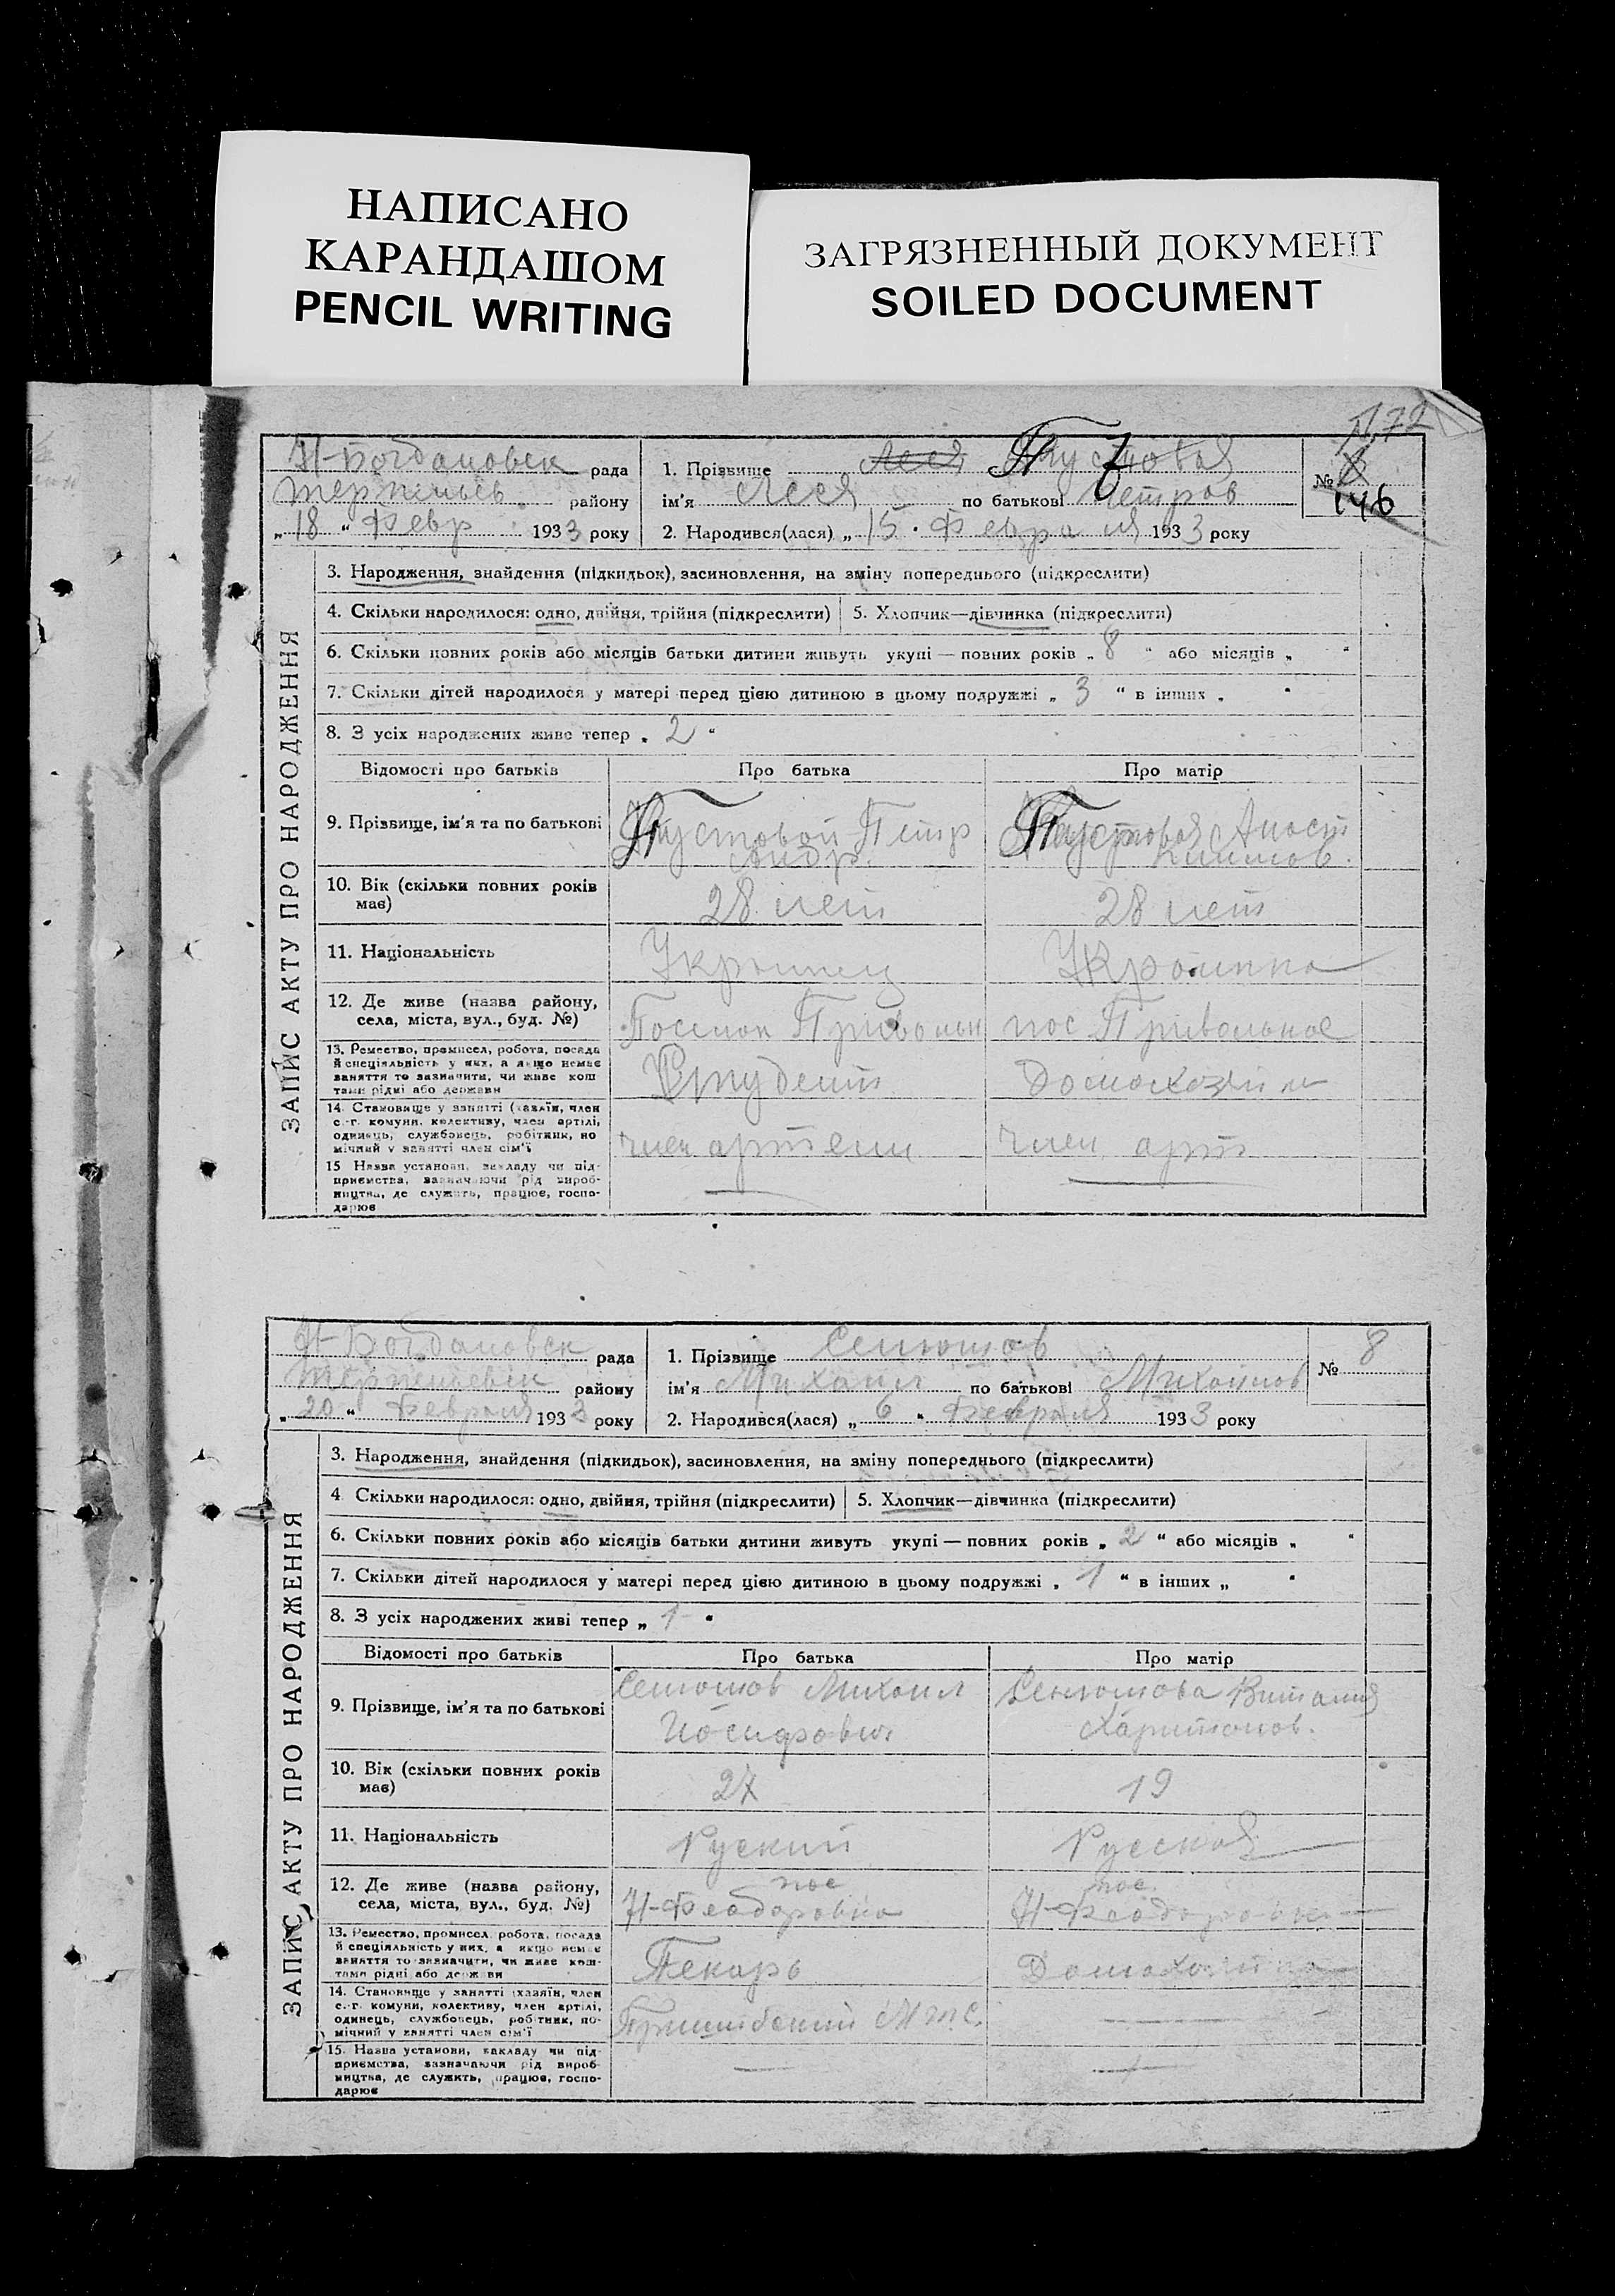 НАПИСАНО
КАРАНДАШОМ
PENCIL WRITING
ЗАГРЯЗНЕННЫЙ ДОКУМЕНТ
SOILED DOCUMENT
172
Н-Богдановск рада
район у
„18“ Февр 1933 року
1. Прізвище Пустовая
ім'я Леся по батькові Петров
2. Народився(лася) „15. Февраля 1933 року
№
146
ЗАПИС АКТУ ПРО НАРОДЖЕННЯ
3. Народження, знайдення (підкидьок), засиновлення, на зміну попереднього (підкреслити)
4. Скільки народилося: одно, двійня, трійня (підкреслити) 5. Хлопчик—дівчинка (підкреслити)
6. Скільки повних років або місяців батьки дитини живуть укупі — повних років „ 8 “ або місяців „ “
7. Скільки дітей народилося у матері перед цією дитиною в цьому подружжі „ 3 “ в інших „ “
8. З усіх народжених живе тепер „ 2 “
Відомості про батьків Про батька Про матір
9. Прізвище, ім'я та по батькові Пустовой Петр Пустовая Анаст
10. Вік (скільки повних років має) 28 лет 28 лет
11. Національність Украинец Украинка
12. Де живе (назва району, села, міста, вул., буд. №) Поселок Привольн пос Привольное
13. Ремество, промисел, робота, посада й спеціяльність у них, а якщо немає заняття то зазначити, чи живе коштами рідні або держави Студент Домохозяй
14. Становище у занятті (хазяїн, член с.-г. комуни, колективу, член артілі, одинець, службовець, робітник, помічний у занятті член сім'ї член артели член арт
15 Назва установи, закладу чи підприємства, зазначаючи рід виробництва, де служить, працює, господарює
Н-Богдановск рада
району
„20“ Февраля 1933 року
1. Прізвище Сенюшов
ім'я Михаил по батькові Михайлов
2. Народився(лася) „6“ Февраля 1933 року
№ 8
ЗАПИС АКТУ ПРО НАРОДЖЕННЯ
3. Народження, знайдення (підкидьок), засиновлення, на зміну попереднього (підкреслити)
4 Скільки народилося: одно, двійня, трійня (підкреслити) 5. Хлопчик—дівчинка (підкреслити)
6. Скільки повних років або місяців батьки дитини живуть укупі — повних років „ 2 “ або місяців „ “
7. Скільки дітей народилося у матері перед цією дитиною в цьому подружжі „ 1 “ в інших „ “
8. З усіх народжених живі тепер „ 1 “
Відомості про батьків Про батька Про матір
9. Прізвище, ім'я та по батькові Сенюшов Михаил Сенюшова Виталия
Иосифович Харитонов.
10. Вік (скільки повних років має) 27 19
11. Національність Руский Руская
12. Де живе (назва району, села, міста, вул., буд. №) пос Н-Феодоровка пос. Н-Феодоровка
13. Ремество, промисел, робота, посада й спеціяльність у них, а якщо немає заняття то зазначити, чи живе коштами рідні або держави Пекарь Домохозяйка
14. Становище у занятті (хазяїн, член с.-г. комуни, колективу, член артілі, одинець, службовець, робітник, помічний у занятті член сім'ї Пришибский МТС.
15. Назва установи, закладу чи підприємства, зазначаючи рід виробництва, де служить, працює, господарює